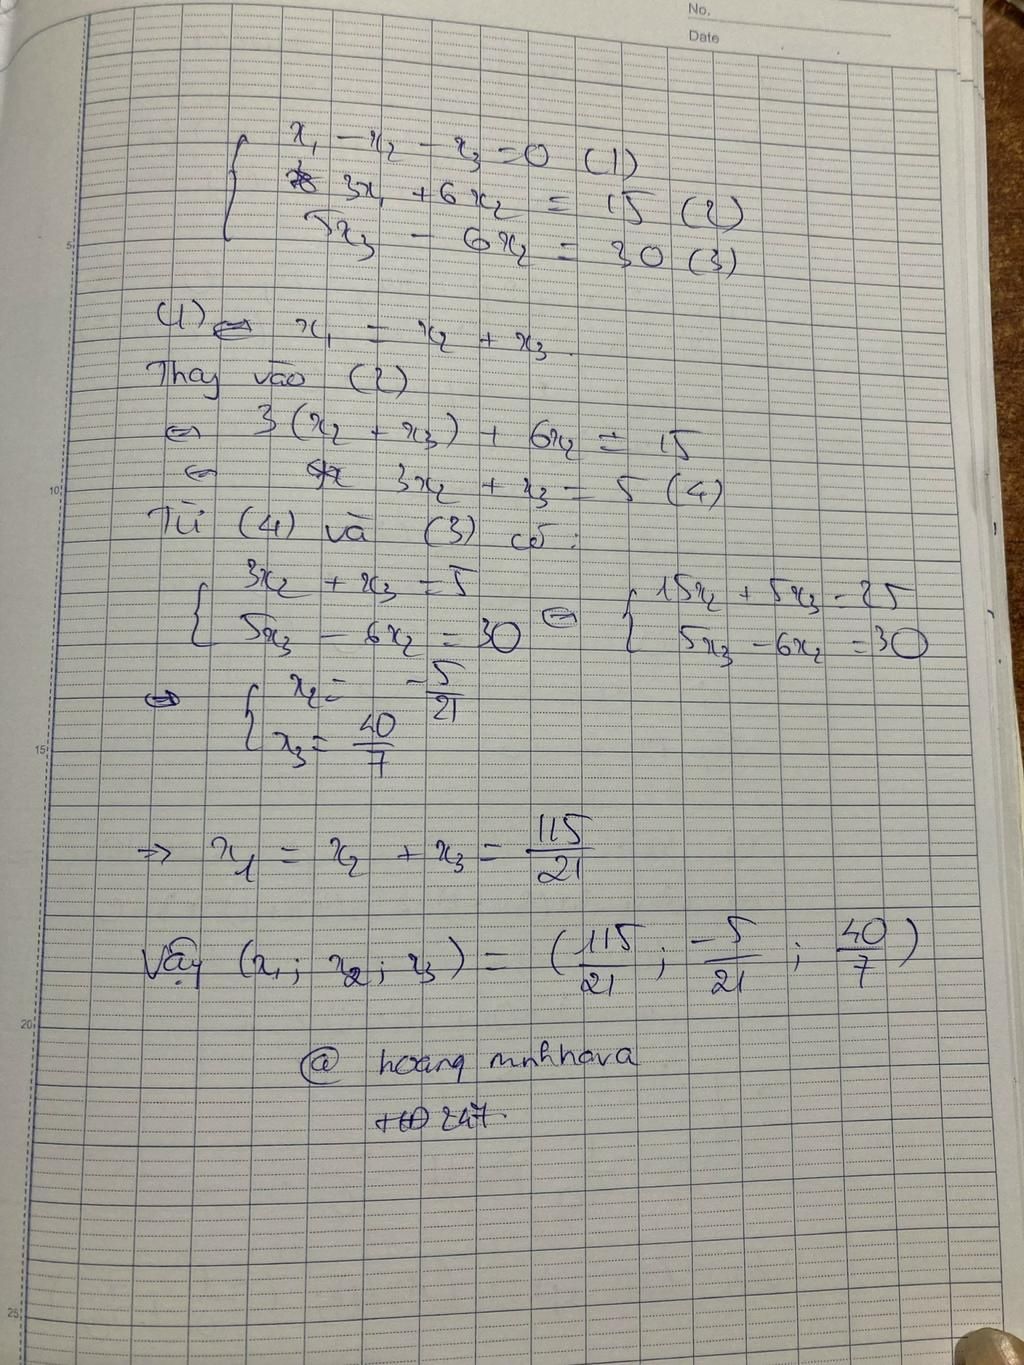 No.
Date
x₁ - x₂ - x₃ = 0 (1)
3x₁ + 6x₂ = 15 (2)
5x₃ - 6x₂ = 30 (3)
(1) ⇔ x₁ = x₂ + x₃
Thay vào (2)
⇔ 3(x₂ + x₃) + 6x₂ = 15
⇔ 3x₂ + x₃ = 5 (4)
Từ (4) và (3) có:
{ 3x₂ + x₃ = 5 ⇔ { 15x₂ + 5x₃ = 25
5x₃ - 6x₂ = 30 5x₃ - 6x₂ = 30
⇔ { x₂ = -5/21
x₃ = 40/7
→ x₁ = x₂ + x₃ = 115/21
Vậy (x₁; x₂; x₃) = (115/21; -5/21; 40/7)
@ hoang
247
5
10
15
20
25